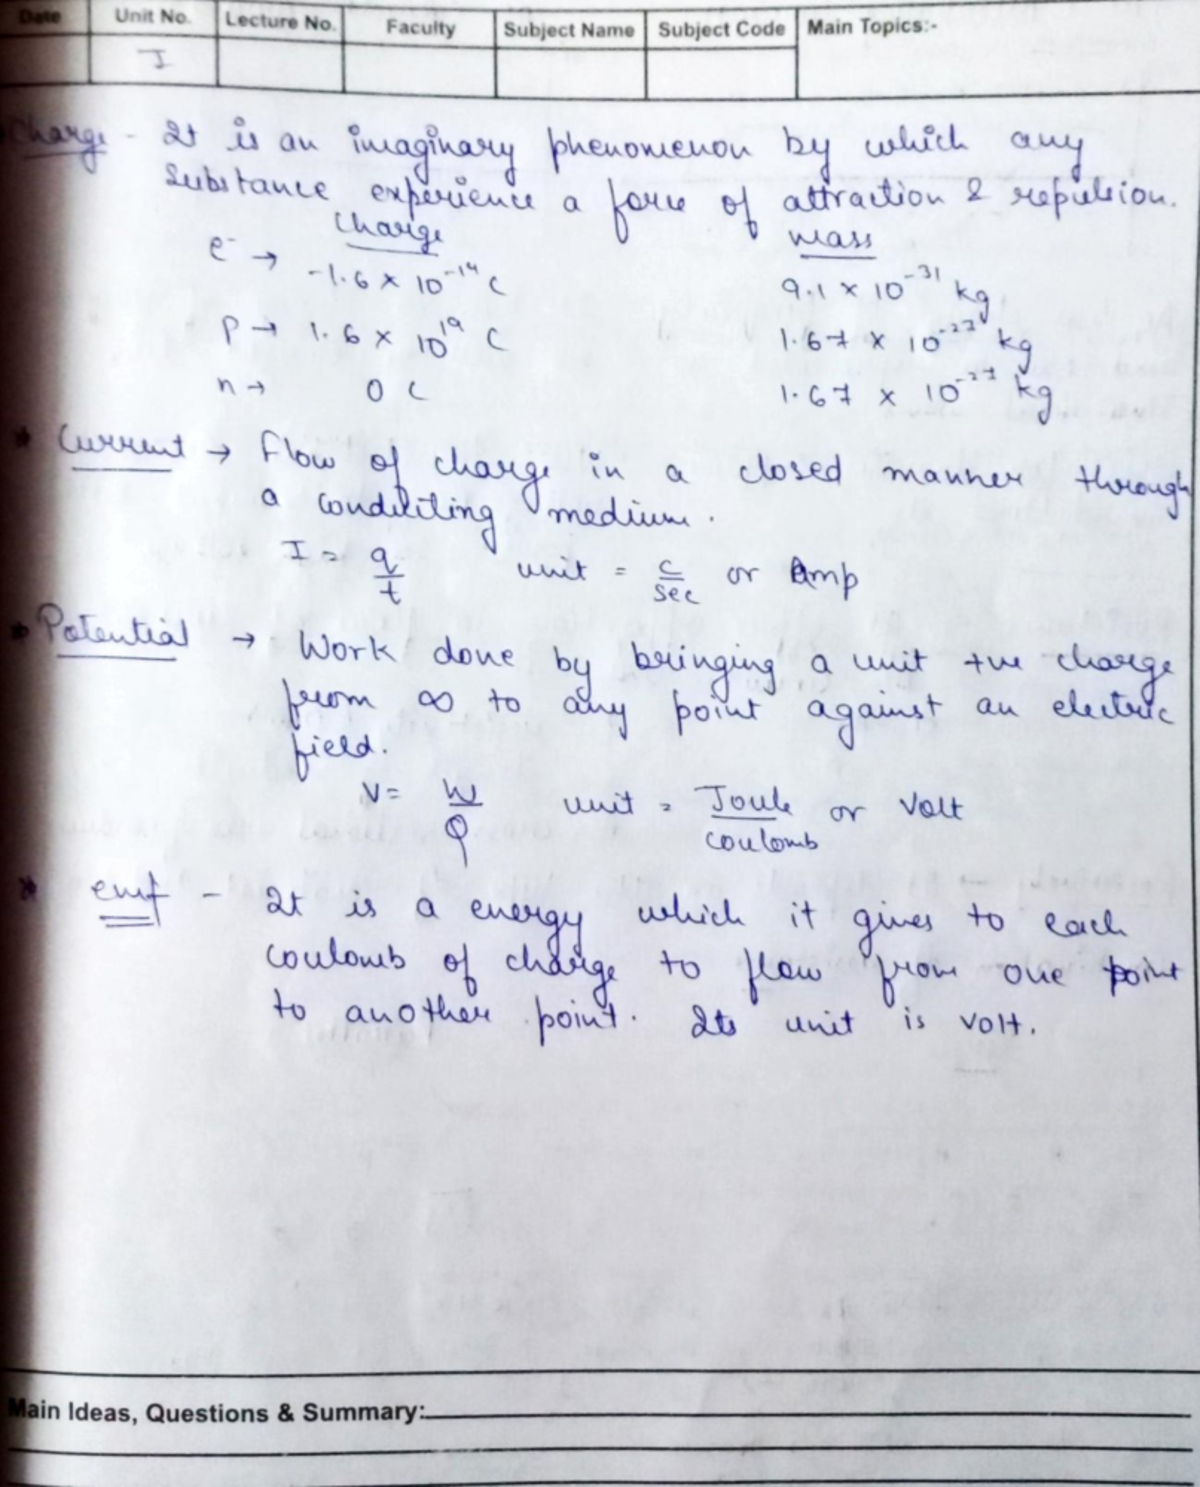 Date Unit No. Lecture No. Faculty Subject Name Subject Code Main Topics:-
I
Charge - It is an imaginary phenomenon by which any
substance experience a force of attraction & repulsion.
Charge mass
e⁻ → -1.6 × 10⁻¹⁴ C 9.1 × 10⁻³¹ kg
P → 1.6 × 10¹⁹ C 1.67 × 10⁻²⁷ kg
n → 0 C 1.67 × 10⁻²⁷ kg
* Current → Flow of charge in a closed manner through
a conducting medium.
I = q/t unit = C/sec or Amp
* Potential → Work done by bringing a unit +ve charge
from ∞ to any point against an electric
field.
V = W/Q unit = Joule/coulomb or Volt
* emf - It is a energy which it gives to each
coulomb of charge to flow from one point
to another point. Its unit is volt.
Main Ideas, Questions & Summary: